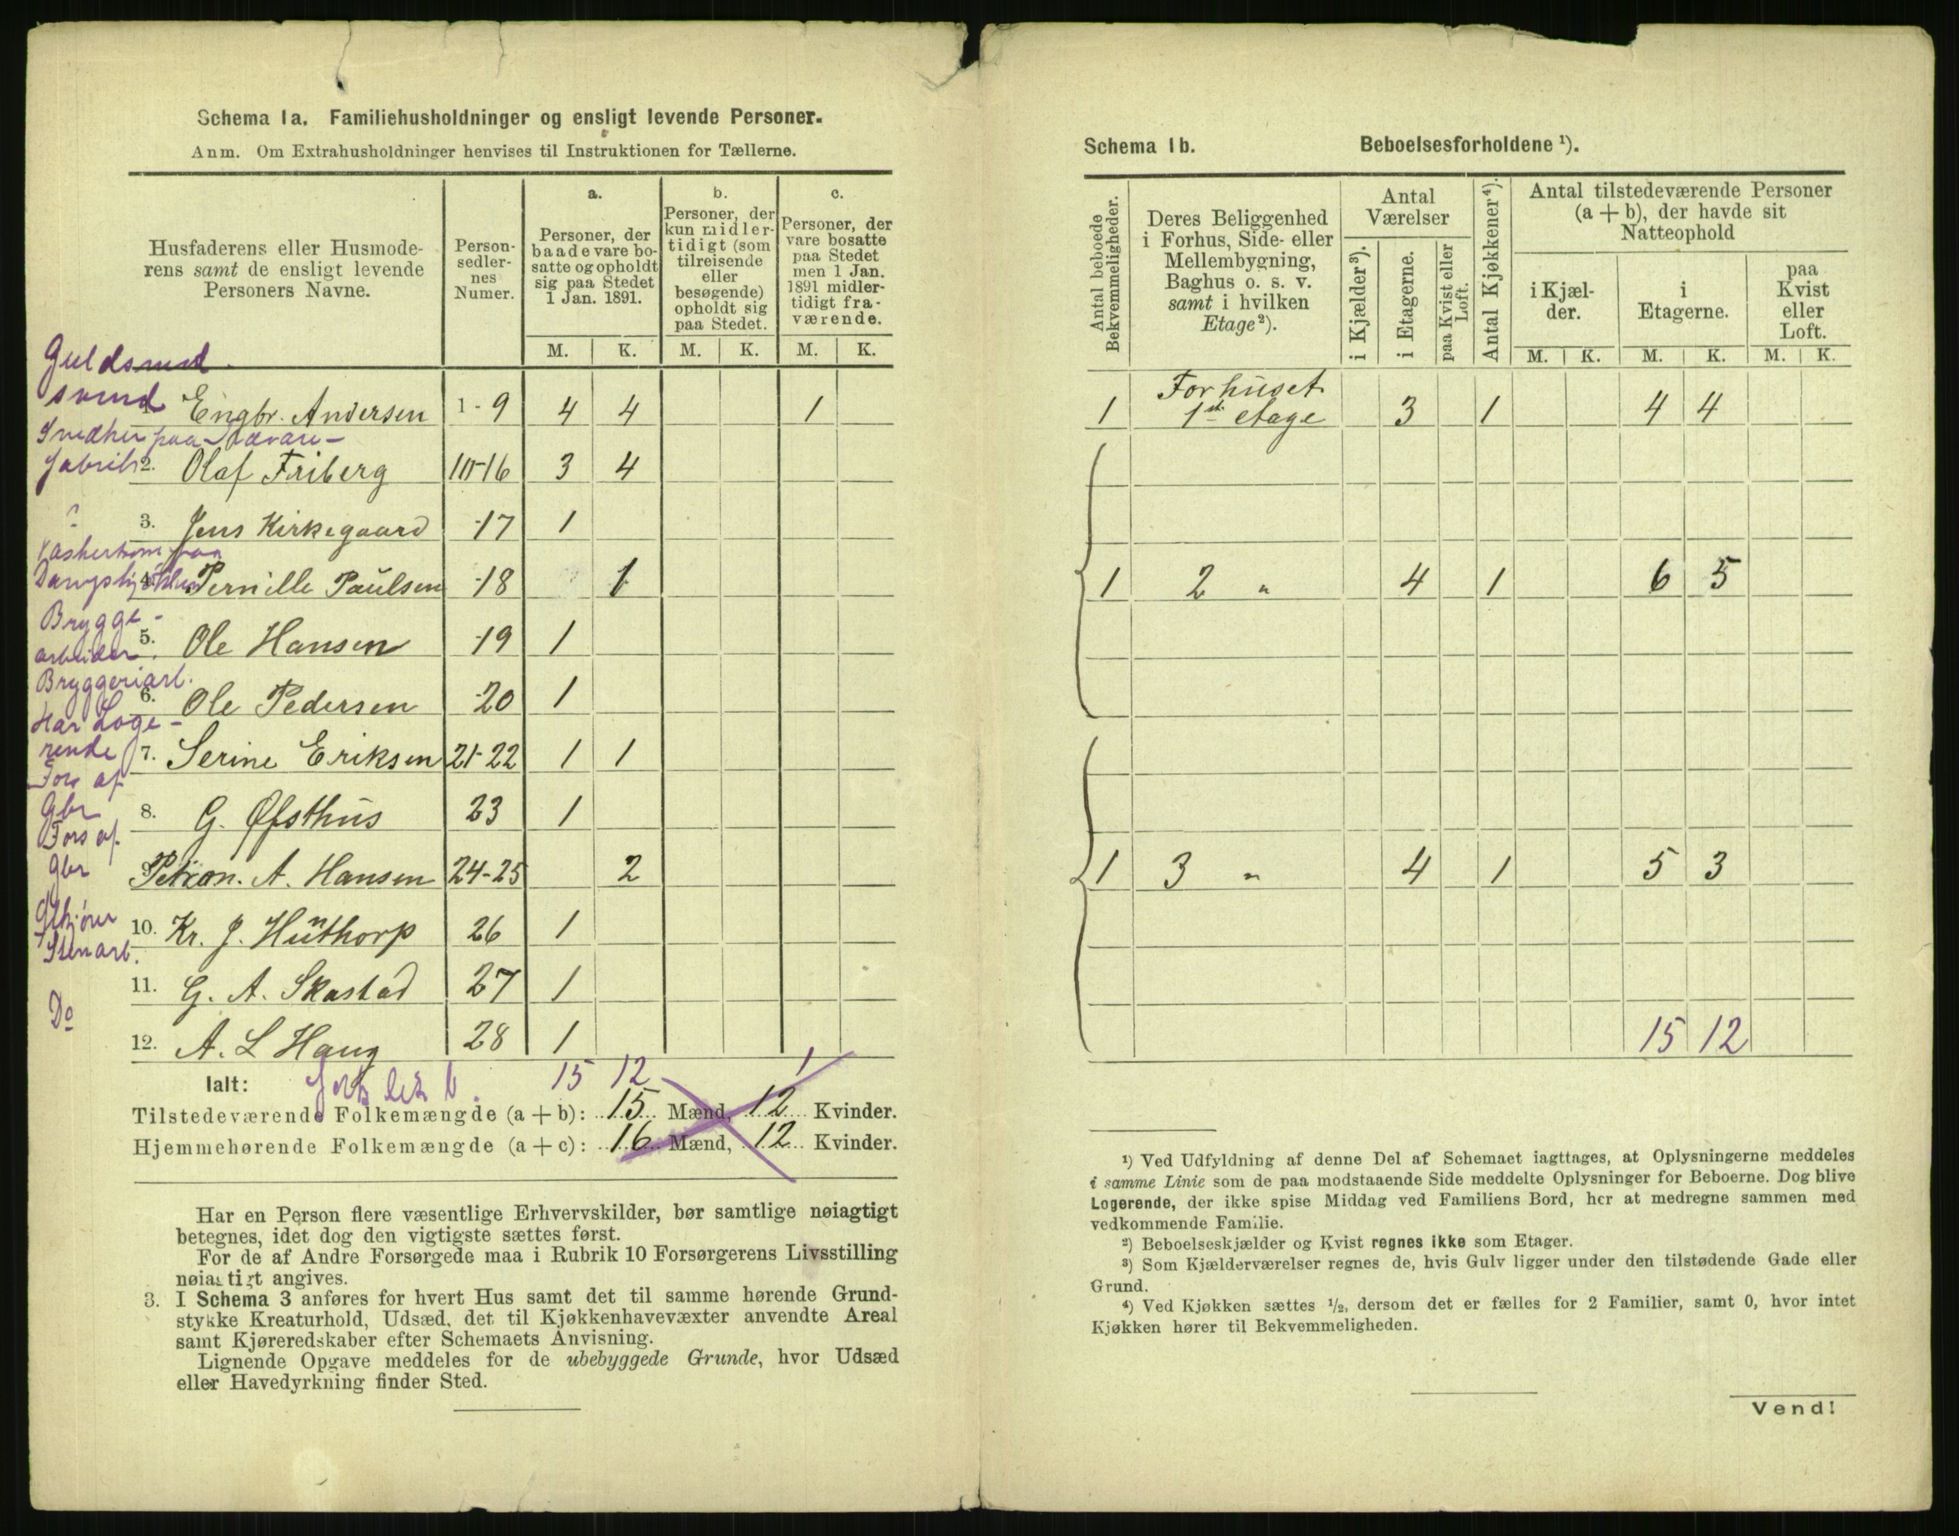 Schema 1a. Familiehusholdninger og ensligt levende Personer.
Anm. Om Extrahusholdninger henvises til Instruktionen for Tællerne.
Husfaderens eller Husmode-
rens samt de ensligt levende
Personers Navne.
Person-
sedler-
nes
Numer.
a.
Personer, der
baade vare bo-
satte og opholdt
sig paa Stedet
1 Jan. 1891.
b.
Personer, der
kun midler-
tidigt (som
tilreisende
eller
besøgende)
opholdt sig
paa Stedet.
c.
Personer, der
vare bosatte
paa Stedet
men 1 Jan.
1891 midler-
tidigt fra-
værende.
M. K. M. K. M. K.
Guldsmed
svend
1. Engbr. Andersen 1-9 4 4 1
Snedker paa
fabrik 2. Olaf Friberg 10-16 3 4
3. Jens Kirkegaard -17 1
paa
4. Pernille Paulsen -18 1
Brygge-
arbeider. 5. Ole Hansen -19 1
Bryggeriarb.
6. Ole Pedersen -20 1
Har Loge-
rende 7. Serine Eriksen 21-22 1 1
Fors af
Gbr 8. G. Øfsthus 23 1
Fors af
Gbr Petron. A. Hansen 24-25 2
10. Kr. J. Hutthorp 26 1
Stenarb.
11. G. A. Skastad 27 1
Do
12. A. L Haug 28 1
Ialt: 15 12 1
Tilstedeværende Folkemængde (a + b): 15 Mænd, 12 Kvinder.
Hjemmehørende Folkemængde (a + c): 16 Mænd, 12 Kvinder.
Har en Person flere væsentlige Erhvervskilder, bør samtlige nøiagtigt
betegnes, idet dog den vigtigste sættes først.
For de af Andre Forsørgede maa i Rubrik 10 Forsørgerens Livsstilling
nøiagtigt angives.
3. I Schema 3 anføres for hvert Hus samt det til samme hørende Grund-
stykke Kreaturhold, Udsæd, det til Kjøkkenhavevæxter anvendte Areal
samt Kjøreredskaber efter Schemaets Anvisning.
Lignende Opgave meddeles for de ubebyggede Grunde, hvor Udsæd
eller Havedyrkning finder Sted.
Schema 1b. Beboelsesforholdene ¹).
Antal beboede
Bekvemmeligheder.
Deres Beliggenhed
i Forhus, Side- eller
Mellembygning,
Baghus o. s. v.
samt i hvilken
Etage²).
Antal
Værelser
i Kjælder³).
i Etagerne.
paa Kvist eller
Loft.
Antal Kjøkkener⁴).
Antal tilstedeværende Personer
(a + b), der havde sit
Natteophold
i Kjæl-
der.
i
Etagerne.
paa
Kvist
eller
Loft.
M. K. M. K. M. K.
Forhuset
1 1st etage 3 1 4 4
1 2 " 4 1 6 5
1 3 " 4 1 5 3
15 12
¹) Ved Udfyldning af denne Del af Schemaet iagttages, at Oplysningerne meddeles
i samme Linie som de paa modstaaende Side meddelte Oplysninger for Beboerne. Dog blive
Logerende, der ikke spise Middag ved Familiens Bord, her at medregne sammen med
vedkommende Familie.
²) Beboelseskjælder og Kvist regnes ikke som Etager.
³) Som Kjælderværelser regnes de, hvis Gulv ligger under den tilstødende Gade eller
Grund.
⁴) Ved Kjøkken sættes ½, dersom det er fælles for 2 Familier, samt 0, hvor intet
Kjøkken hører til Bekvemmeligheden.
Vend!